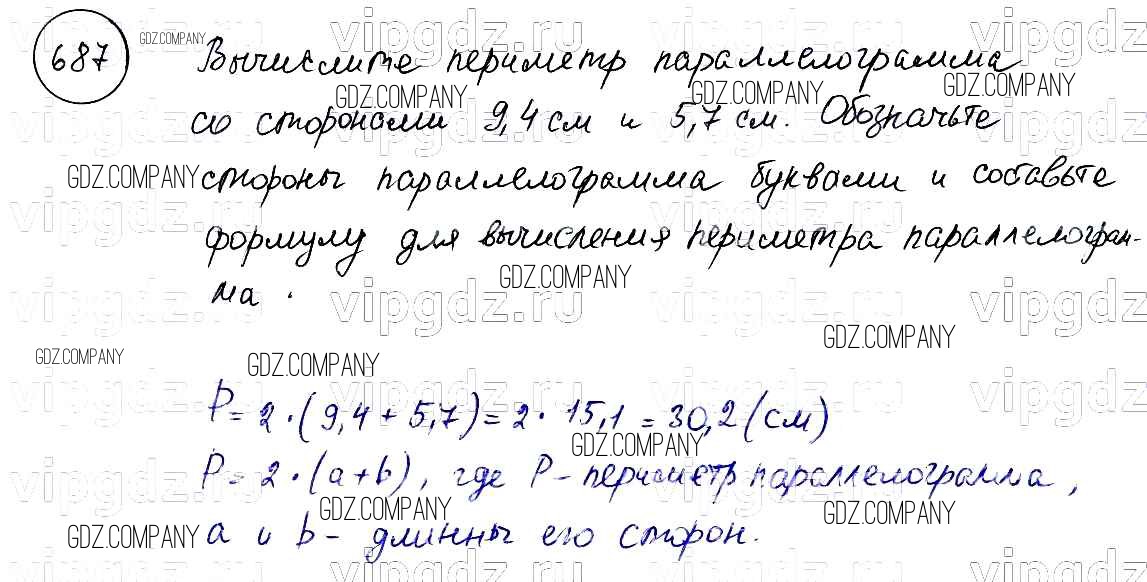 687 GDZ.COMPANY Вычислите периметр параллелограмма
GDZ.COMPANY GDZ.COMPANY GDZ.COMPANY
со сторонами 9,4 см и 5,7 см. Обозначьте
GDZ.COMPANY стороны параллелограмма буквами и составьте
формулу для вычисления периметра параллелограм-
GDZ.COMPANY
ма.
vipgdz.ru vipgdz.ru vipgdz.ru
GDZ.COMPANY
GDZ.COMPANY GDZ.COMPANY
P = 2 · (9,4 + 5,7) = 2 · 15,1 = 30,2 (см)
GDZ.COMPANY
P = 2 · (a+b), где P - периметр параллелограмма,
GDZ.COMPANY GDZ.COMPANY
GDZ.COMPANY a и b - длинны его сторон.
vipgdz.ru vipgdz.ru vipgdz.ru